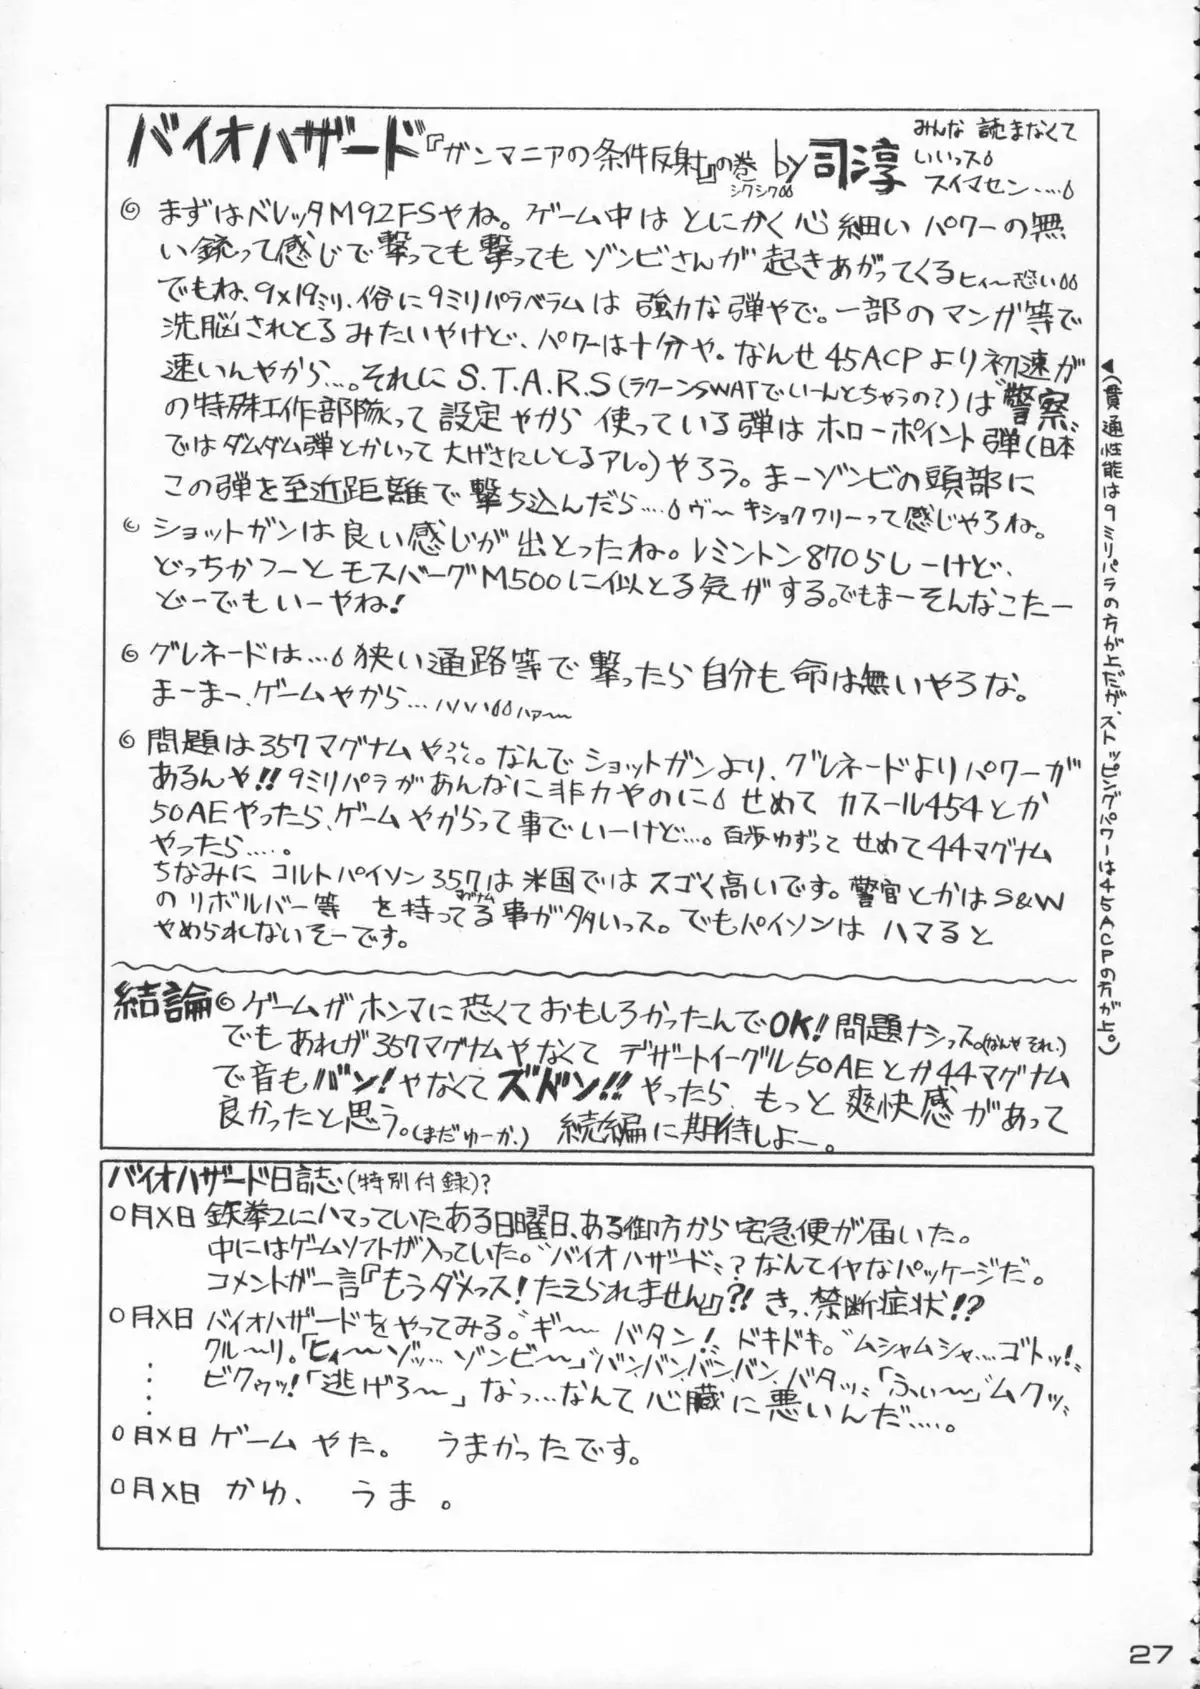 バイオハザード『ガンマニアの条件反射』の巻 by 司淳
シクシク
みんな 読まなくて
いいっス
スイマセン‥‥
◎ まずはベレッタM92FSやね。ゲーム中は とにかく心細い パワーの無
い銃って感じで撃っても撃ってもゾンビさんが 起きあがってくるヒィ〜恐い
でもね、9×19ミリ、俗に9ミリパラベラムは 強力な弾やで。一部のマンガ等で
洗脳されとるみたいやけど、パワーは十分や。なんせ45ACPより初速が
速いんやから…。それにS.T.A.R.S(ラクーンSWATでいーんとちゃうの?)は〝警察〟
の特殊工作部隊って設定やから使っている弾はホローポイント弾(日本
ではダムダム弾とかいって大げさにしとるアレ。)やろう。まーゾンビの頭部に
この弾を至近距離で撃ち込んだら‥‥ヴ〜 キショクワリーって感じやろね。
◎ ショットガンは良い感じが出とったね。レミントン870らしーけど、
どっちかフーとモスバーグM500に似とる気がする。でもまーそんなこたー
どーでもいーやね!
◎ グレネードは…狭い通路等で撃ったら自分も命は無いやろな。
まーまー、ゲームやから…ハハハハァ〜
◎ 問題は357マグナムやっつ。なんでショットガンより、グレネードよりパワーが
あるんや!!9ミリパラがあんなに非力やのに せめて カスール454とか
50AEやったら、ゲームやからって事でいーけど…。百歩ゆずって せめて44マグナム
やったら‥‥。
ちなみに コルトパイソン357は米国ではスゴく高いです。警官とかはS&W
のリボルバー等 を持ってる事が多いっス。でもパイソンは ハマると
マグナム
やめられないそーです。
▲(貫通性能は9ミリパラの方が上だが、ストッピングパワーは45ACPの方が上。)
結論◎ゲームがホンマに恐くておもしろかったんでOK!問題ナシっス。(なんやそれ。)
でもあれが357マグナムやなくて デザートイーグル50AEとか44マグナム
で音もバン!やなくてズドン!!やったら、もっと爽快感があって
良かったと思う。(まだゆーか。) 続編に期待しよー。
バイオハザード日誌(特別付録)?
0月X日 鉄拳2にハマっていたある日曜日、ある御方から宅急便が届いた。
中にはゲームソフトが入っていた。〝バイオハザード〟?なんてイヤなパッケージだ。
コメントが一言『もうダメっス!たえられません』?!きっ、禁断症状!?
0月X日 バイオハザードをやってみる。〝ギ〜 バタン!〟ドキドキ。〝ムシャムシャ…ゴトッ!〟
クル〜リ。「ヒィ〜ゾッ…ゾンビ〜」〝バン、バン、バン、バン、バタッ〟「ふぃ〜」〝ムクッ〟
ビクゥッ!「逃げろ〜」なっ…なんて心臓に悪いんだ‥‥。
0月X日 ゲーム やた。 うまかったです。
0月X日 かゆ、 うま 。
27